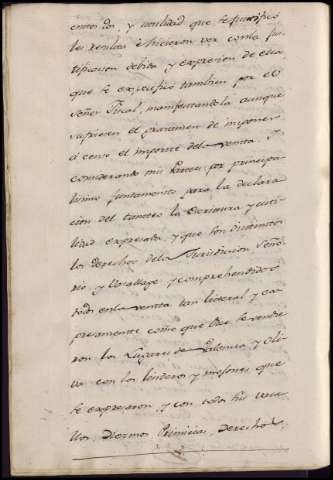 y utilidad que se justificó
hicieron ver con la jus
tificacion debida y expresion de ella
que se expresó tambien por el
Señor Fiscal, manifestandola aunque
sufriesen el gravamen de imponer
á censo el importe de la venta. Y
considerando mis Partes por principa
lísimo fundamento para la declara
cion del tanteo la Escritura y enti
dad expresada, y que son distintos
los derechos de la Jurisdiccion Seño
rio y Vasallage y comprehendidos
todos en la venta tan literal y ex
presamente como que Dice se vendie
ron los Lugares de Palencia y Oli
va con los linderos y mojones que
se expresaron y con todos sus vasa
llos, Diezmos, Primicias, derechos,